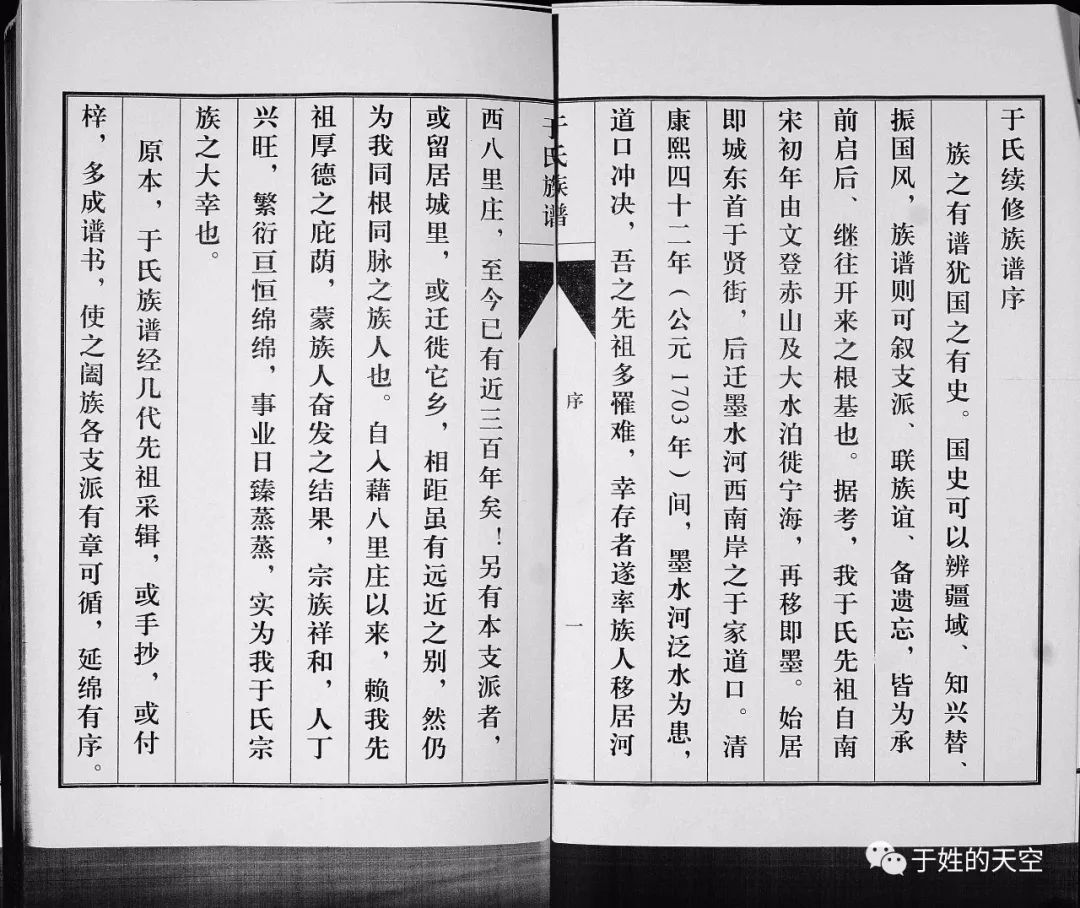 于氏续修族谱序
族之有谱犹国之有史。国史可以辨疆域、知兴替、
振国风，族谱则可叙支派、联族谊、备遗忘，皆为承
前启后、继往开来之根基也。据考，我于氏先祖自南
宋初年由文登赤山及大水泊徙宁海，再移即墨。始居
即城东首于贤街，后迁墨水河西南岸之于家道口。清
康熙四十二年（公元1703年）间，墨水河泛水为患，
道口冲决，吾之先祖多罹难，幸存者遂率族人移居河
于氏族谱
序
一
西八里庄，至今已有近三百年矣！另有本支派者，
或留居城里，或迁徙它乡，相距虽有远近之别，然仍
为我同根同脉之族人也。自入藉八里庄以来，赖我先
祖厚德之庇荫，蒙族人奋发之结果，宗族祥和，人丁
兴旺，繁衍亘恒绵绵，事业日臻蒸蒸，实为我于氏宗
族之大幸也。
原本，于氏族谱经几代先祖采辑，或手抄，或付
梓，多成谱书，使之阖族各支派有章可循，延绵有序。
于姓的天空